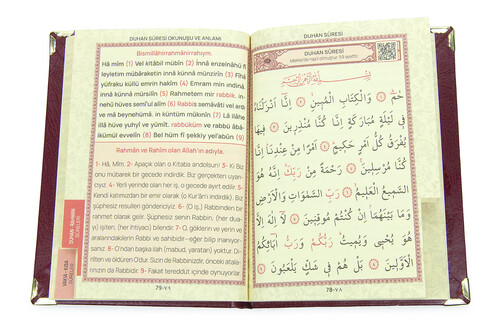 DUHAN SÛRESİ OKUNUŞU VE ANLAMI
Bismillâhirrahmânirrahîm.
Hâ mîm (1) Vel kitâbil mübîn (2) İnnâ enzelnâhü fî
leyletim mübâraketin innâ künnâ münzirîn (3) Fîhâ
yüfraku küllü emrin hakîm (4) Emram min ındinâ.
innâ künnâ mürsilîn (5) Rahmetem mir rabbik. in-
nehû hüves semî'ul alîm (6) Rabbis semâvâti vel ard
ve mâ beynehümâ. in küntüm mûkınîn (7) Lâ ilâhe
illâ hüve yuhyî ve yümît. rabbüküm ve rabbü âbâ-
ikümül evvelîn (8) Bel hüm fî şekkiy yel'abûn (9)
Rahman ve Rahîm olan Allah'ın adıyla.
1- Hâ, Mîm. 2- Apaçık olan o Kitaba andolsun! 3- Ki Biz
onu mübarek bir gecede indirdik. Biz gerçekten uyarı-
cıyız. 4- Yeli yerinde olan her iş, o gecede ayırt edilir. 5-
Kendi katımızdan bir emir olarak (o Kur'ânı indirdik). Biz
şüphesiz resulleri göndericiyiz. 6- (O iş,) Rabbinden bir
rahmet olarak gelir. Şüphesiz senin Rabbin, (her dua-
yı) işiten, (her ihtiyacı) bilendir. 7- O, göklerin ve yerin ve
aralarındakilerin Rabbi ve sahibidir-eğer bilip inanıyor-
sanız. 8- O'ndan başka ilah (mabud, yaratan) yoktur. Di-
rilten ve öldüren Odur. Sizin de Rabbinizdir, önceki atala-
rınızın da Rabbidir. 9- Fakat tereddüt içinde oynuyorlar.
79-٧٩
DUHAN SÛRESİ
DUHAN SÛRESİ
بِسْمِ اللّٰهِ الرَّحْمٰنِ الرَّحِيمِ
حٰمٓ ﴿١﴾ وَالْكِتَابِ الْمُبِينِ ﴿٢﴾ اِنَّٓا اَنْزَلْنَاهُ
فِي لَيْلَةٍ مُبَارَكَةٍ اِنَّا كُنَّا مُنْذِرِينَ ﴿٣﴾ فِيهَا
يُفْرَقُ كُلُّ اَمْرٍ حَكِيمٍ ﴿٤﴾ اَمْرًا مِنْ عِنْدِنَا اِنَّا
كُنَّا مُرْسِلِينَ ﴿٥﴾ رَحْمَةً مِنْ رَبِّكَ اِنَّهُ هُوَ
السَّمِيعُ الْعَلِيمُ ﴿٦﴾ رَبِّ السَّمٰوَاتِ وَالْاَرْضِ
وَمَا بَيْنَهُمَا اِنْ كُنْتُمْ مُوقِنِينَ ﴿٧﴾ لَٓا اِلٰهَ اِلَّا
هُوَ يُحْيِي وَيُمِيتُ رَبُّكُمْ وَرَبُّ اٰبَٓائِكُمُ
الْاَوَّلِينَ ﴿٨﴾ بَلْ هُمْ فِي شَكٍّ يَلْعَبُونَ ﴿٩﴾
78-٧٨